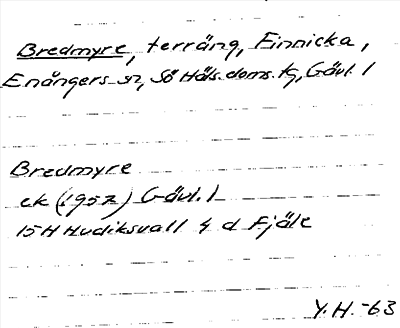 Bredmyre, terräng, Finnicka,
Enångers sn, Sö Häls. doms. tg, Gävl. l
Bredmyre
ek (1957) Gävl. l
15H Hudiksvall 4 d Fjäle
Y. H. -63